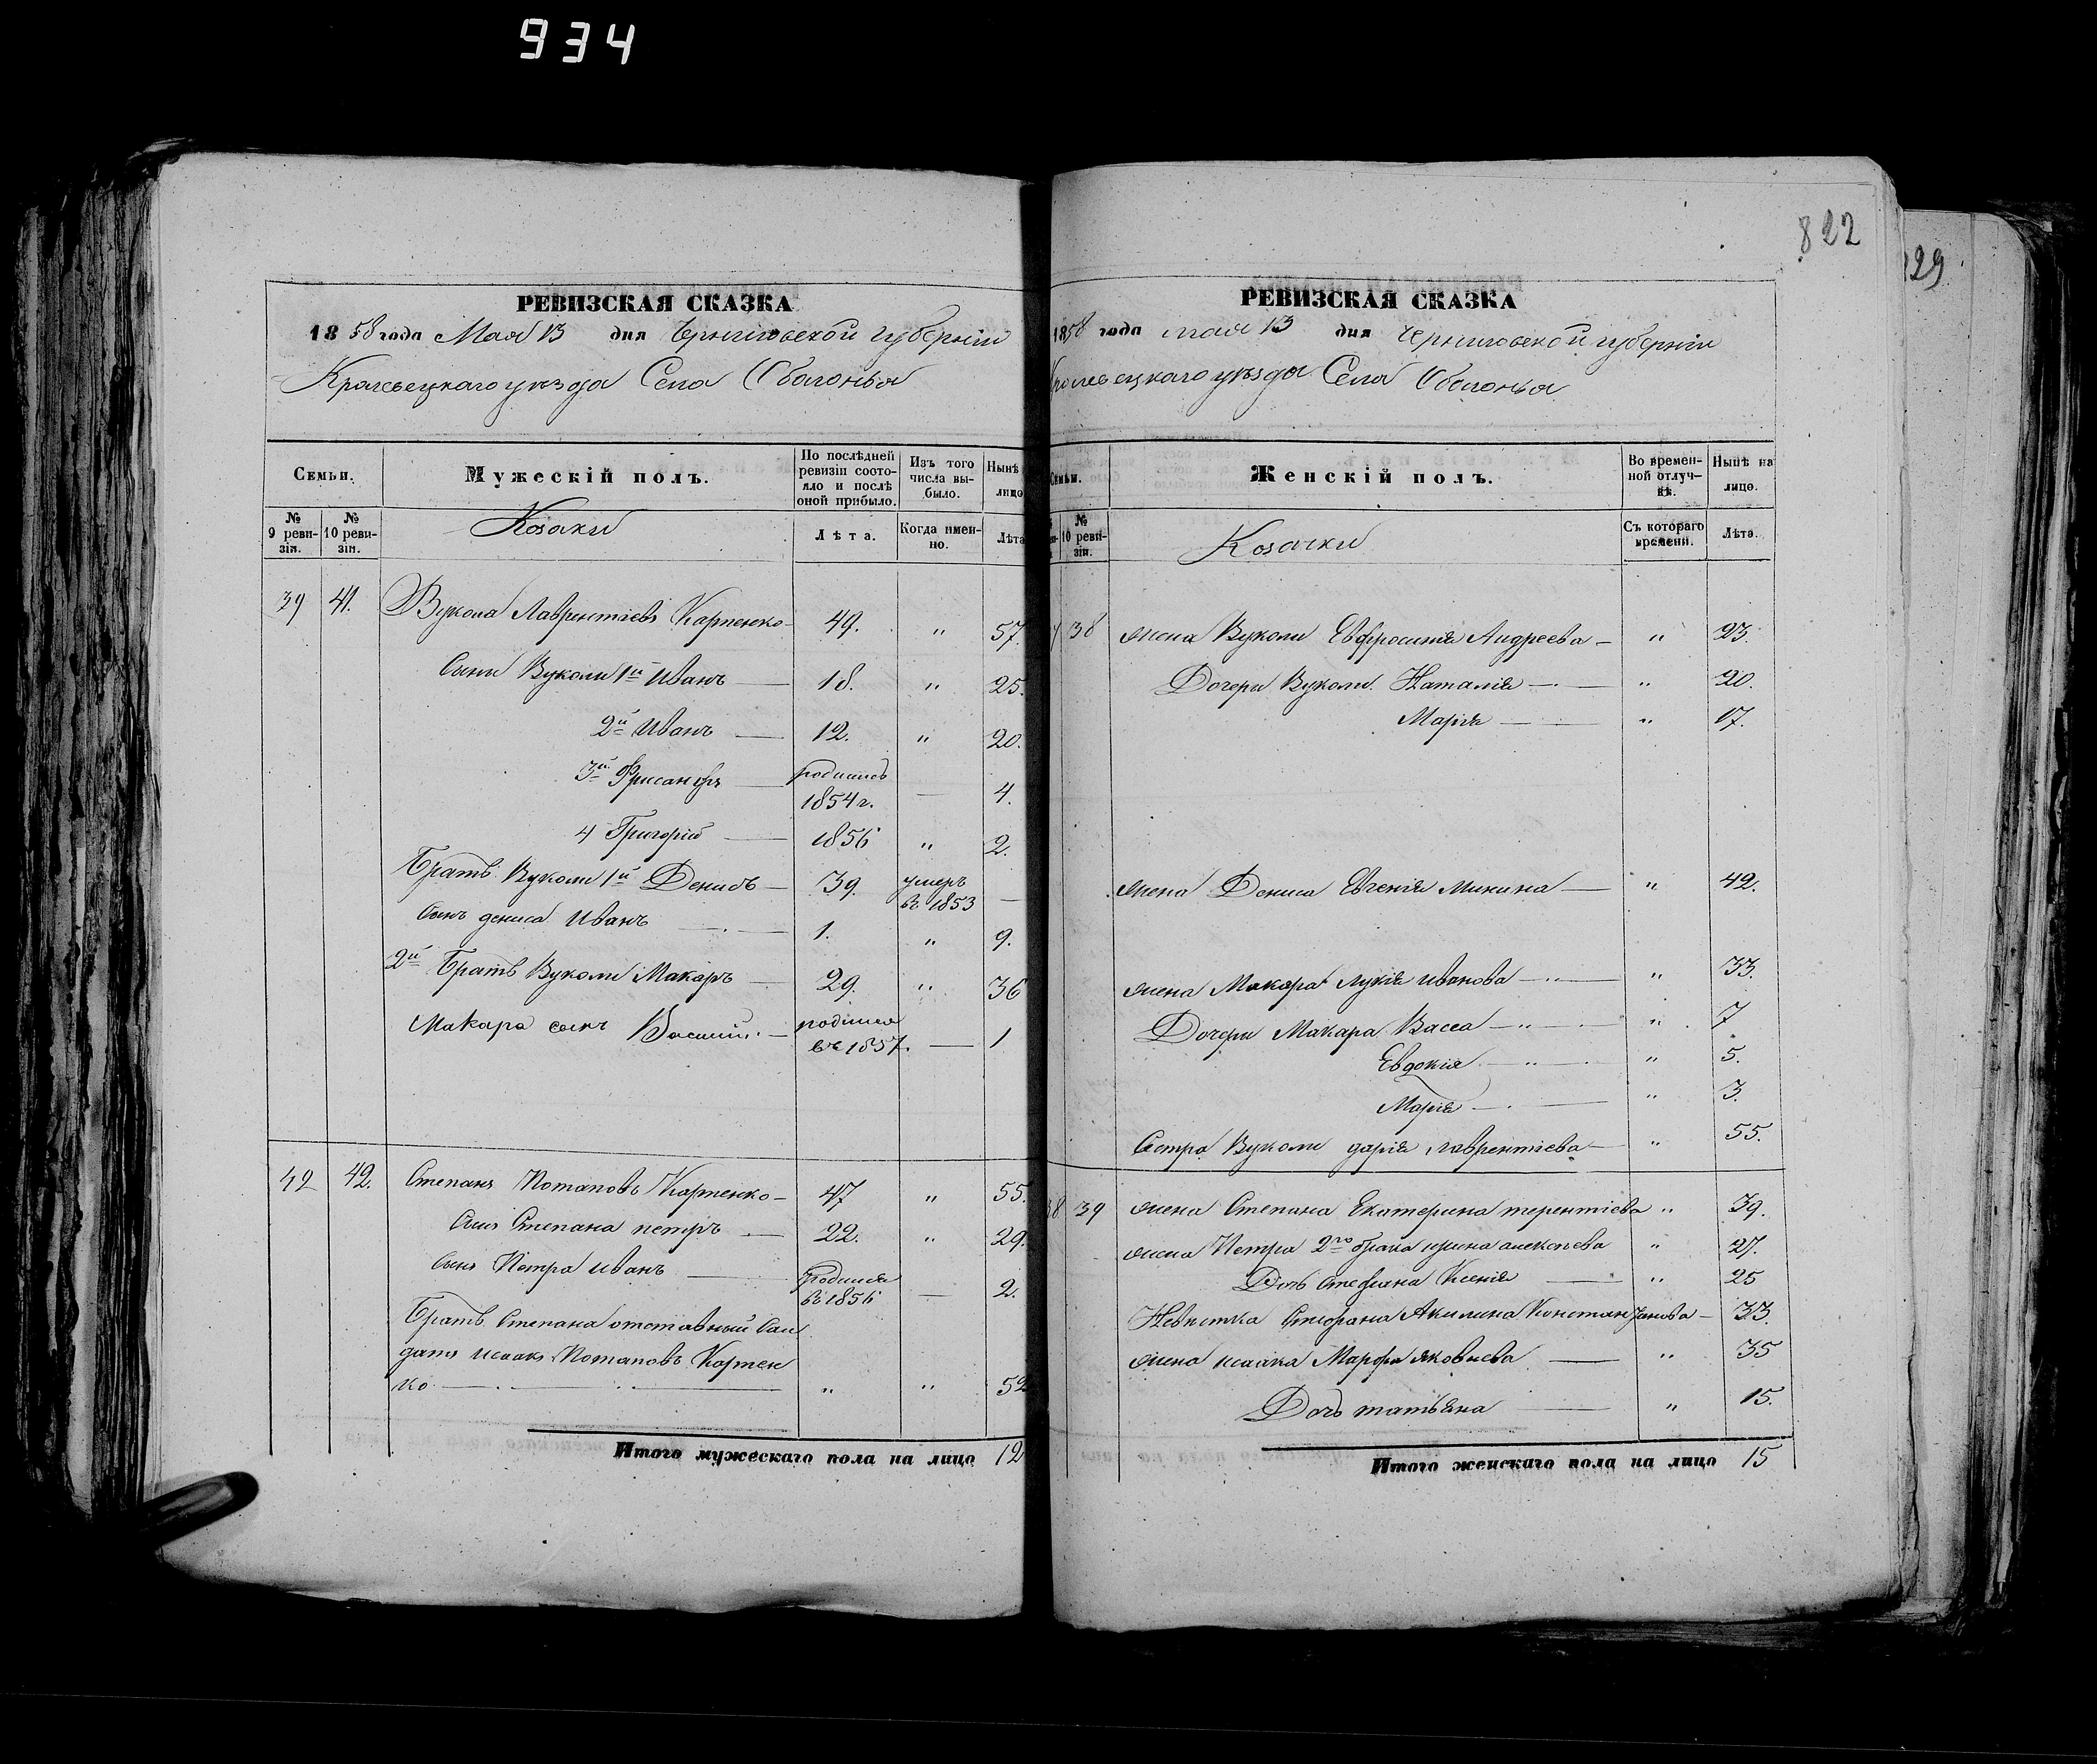 934
822
29
РЕВИЗСКАЯ СКАЗКА
1858 года Мая 13 дня Черниговской губерніи
Кролевецкаго уѣзда Села Оболонья
Семьи.
Мужескій полъ.
По послѣдней ревизіи состояло и послѣ оной прибыло.
Изъ того числа выбыло.
Нынѣ лицо
№ 9 ревизіи.
№ 10 ревизіи.
Козаки
Лѣта.
Когда именно.
Лѣта
39 41. Вукола Лаврентіевъ Карпенко 49. " 57.
Сыны Вуколы 1й Иванъ — 18. " 25.
2й Иванъ — 12. " 20.
3й — родился 1854 г. — 4.
4 Григорій — 1856 " 2.
Братъ Вуколы 1й Денисъ — 39. умеръ въ 1853 —
Сынъ дениса Иванъ — 1. " 9.
2й Братъ Вуколы Макаръ — 29. " 36
Макара сынъ Василій — родился въ 1857. — 1
42 42. Степанъ Потаповъ Карпенко — 47 " 55.
Сынъ Степана петръ — 22. " 29.
Сынъ Петра иванъ — родился въ 1856 — 2.
Братъ Степана отставный Сол
датъ исаакъ Потаповъ Карпен
ко — " " 52
Итого мужескаго пола на лицо 12
РЕВИЗСКАЯ СКАЗКА
1858 года мая 13 дня Черниговской губерніи
Кролевецкаго уѣзда Села Оболонья
Семьи.
Женскій полъ.
Во временной отлучкѣ.
Нынѣ на лицо.
№ 10 ревизіи.
Козачки
Съ котораго времени.
Лѣта.
38 жена Вуколы Евфросинія Андреева — " 23.
Дочери Вуколы Наталія — " 20.
Марія — " 17.
жена Дениса Евгенія Микина — " 42.
жена Макара лукія иванова — " 33.
Дочери Макара Васса — " 7
Евдокія — " 5.
Марія — " 3.
Сстра Вуколы дарія лаврентіева — " 55.
38 39 жена Степана Екатерина терентіева " 39.
жена Петра 2го брака ирина алексѣева " 27.
Дочь стефана Ксенія — " 25
Невѣстка Стефана Акилина Константинова — 33.
жена исаака Марфа яковлева — " 35
Дочь татьяна — " 15.
Итого женскаго пола на лицо 15